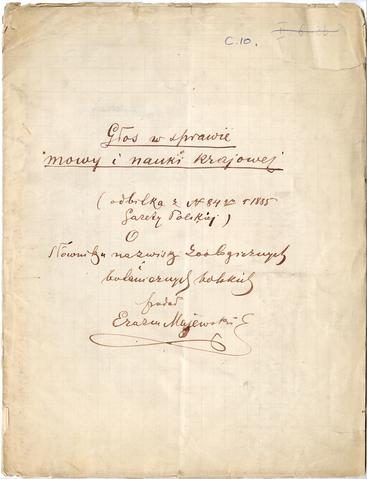 C.10.
Głos w sprawie
mowy i nauki krajowej
(odbitka z № 84 r 1885
Gazety Polskiej)
O
Słowniku nazwisk zoologicznych
botanicznych polskich
podał
Erazm Majewski